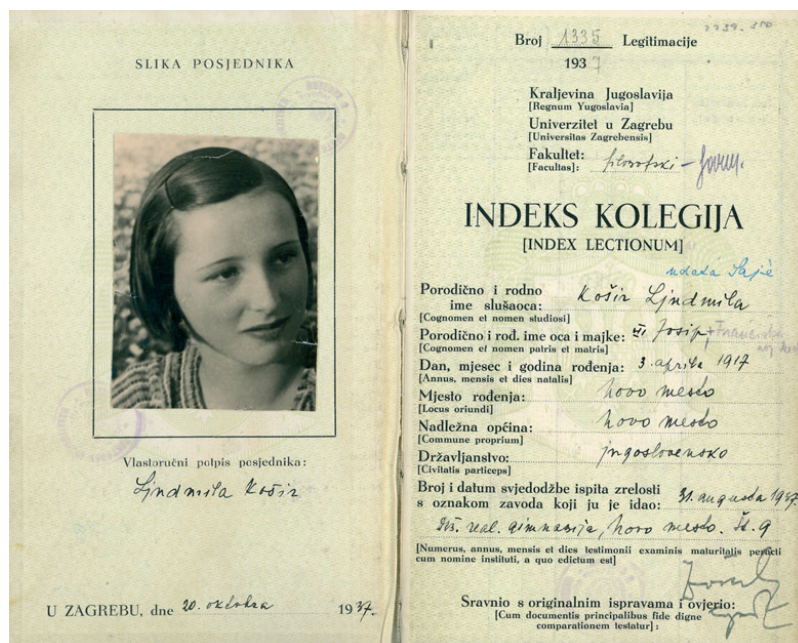 SLIKA POSJEDNIKA
Vlastoručni potpis posjednika:
Ljudmila Košir
U ZAGREBU, dne 20. oktobra 1937.
Broj 1335 Legitimacije
1937
Kraljevina Jugoslavija
[Regnum Yugoslavia]
Univerzitet u Zagrebu
[Universitas Zagrebensis]
Fakultet: filozofski –
[Facultas]:
INDEKS KOLEGIJA
[INDEX LECTIONUM]
udata
Porodično i rodno
ime slušaoca: Košir Ljudmila
[Cognomen et nomen studiosi]
Porodično i rod. ime oca i majke: Josip,
[Cognomen et nomen patris et matris]
Dan, mjesec i godina rođenja: 3. aprila 1917
[Annus, mensis et dies natalis]
Mjesto rođenja: Novo mesto
[Locus oriundi]
Nadležna općina: Novo mesto
[Commune proprium]
Državljanstvo: jugoslovensko
[Civitatis particeps]
Broj i datum svjedodžbe ispita zrelosti
s oznakom zavoda koji ju je idao: 31. augusta 1937.
real. gimnazija, Novo mesto. Št. 9
[Numerus, annus, mensis et dies testimonii examinis maturitatis peracti
cum nomine instituti, a quo edictum est]
Sravnio s originalnim ispravama i ovjerio:
[Cum documentis principalibus fide digne
comparationem testatur]: